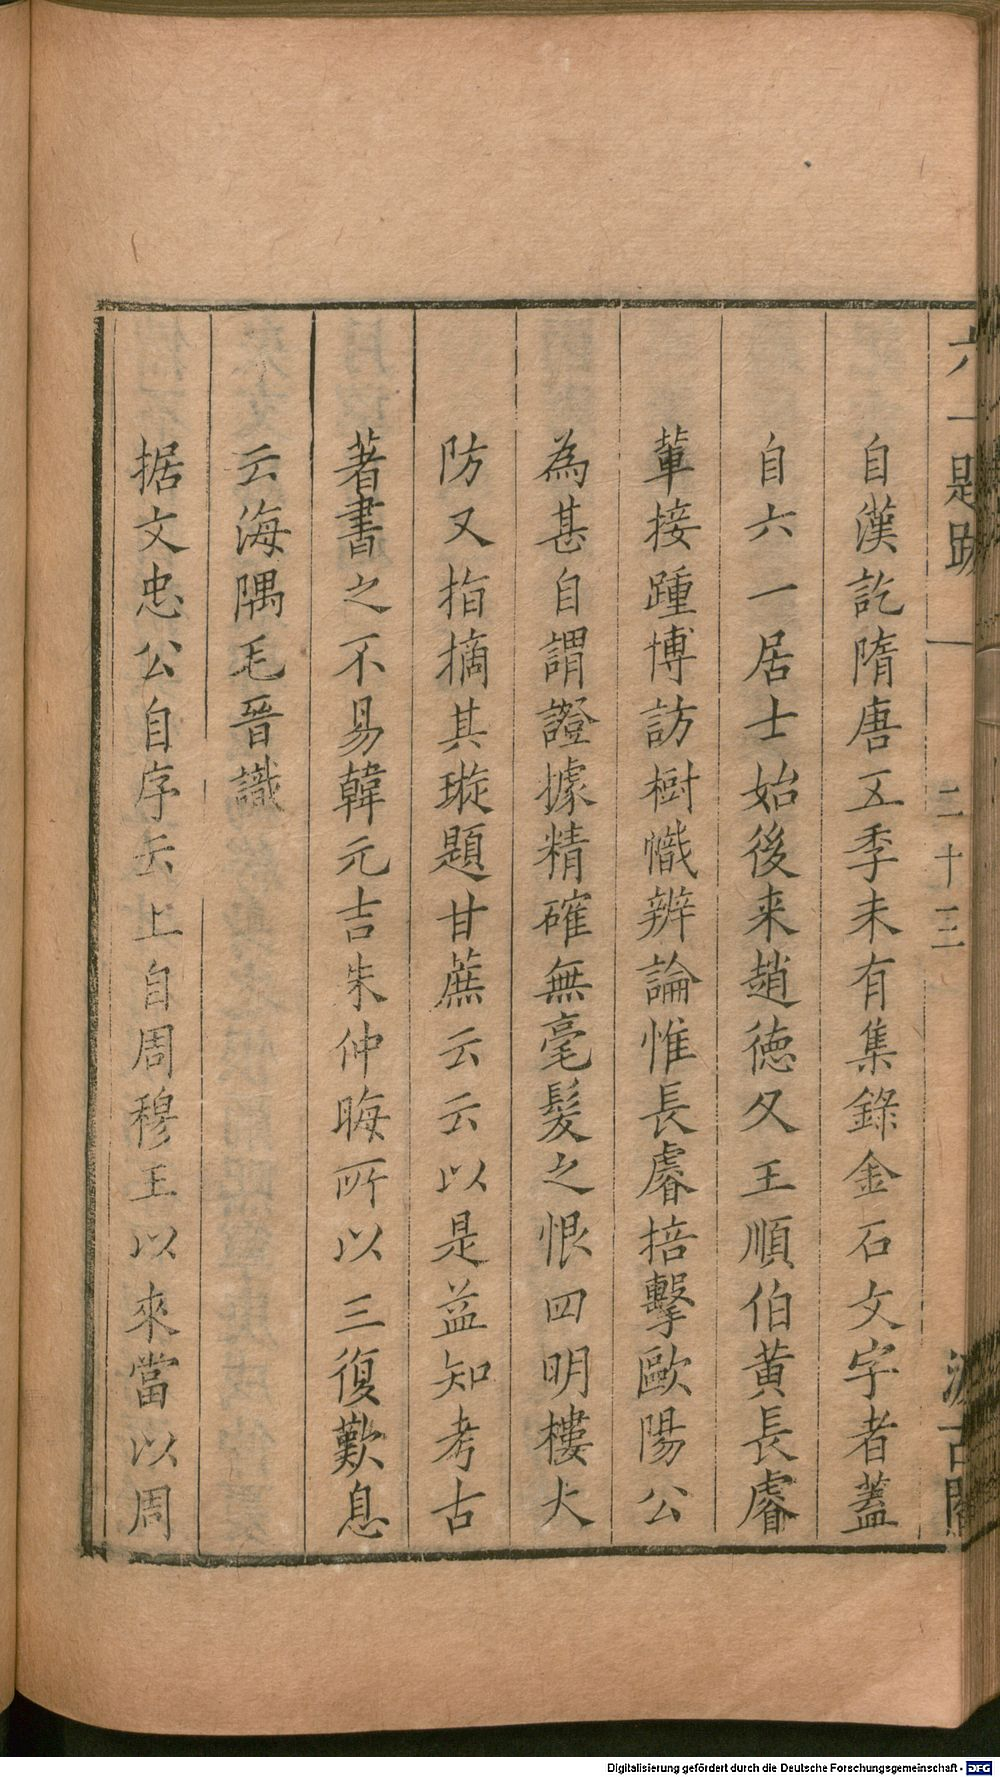 六一題跋 一 二十三 汲古閣
自漢訖隋唐五季未有集錄金石文字者蓋
自六一居士始後来趙德夊王順伯黄長睿
軰接踵博訪樹幟辨論惟長睿掊擊歐陽公
為甚自謂證據精確無毫髮之恨四明樓大
防又指摘其璇題甘蔗云云以是益知考古
著書之不易韓元吉朱仲晦所以三復歎息
云海隅毛晉識
据文忠公自序云上自周穆王以來當以周
Digitalisierung gefördert durch die Deutsche Forschungsgemeinschaft - DFG